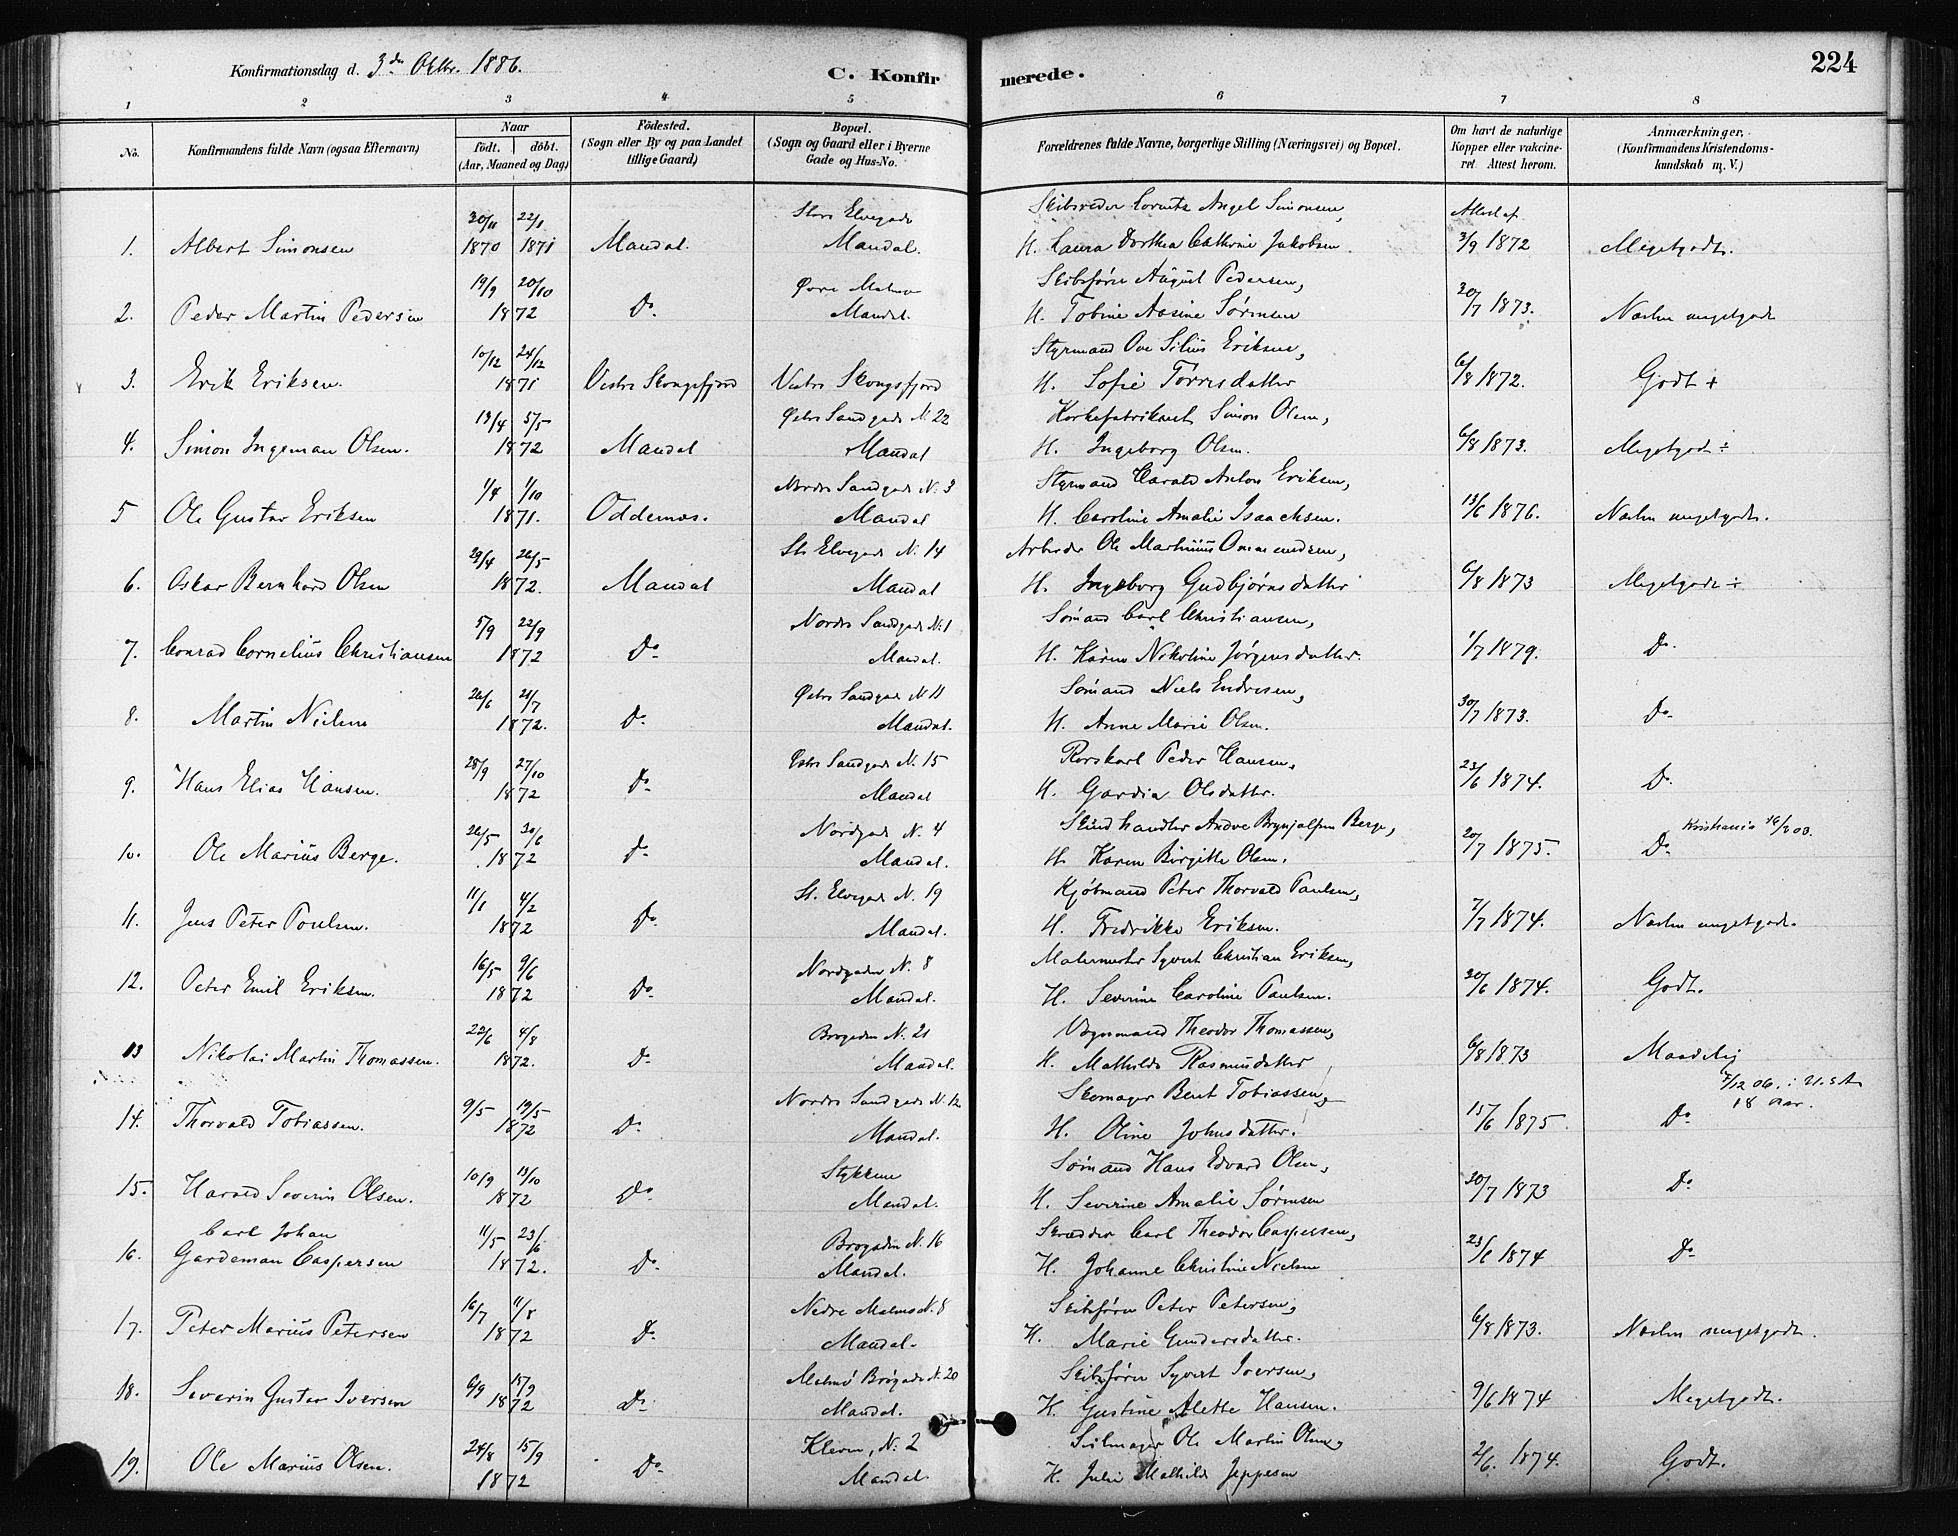 Konfirmationsdag d. 3die Oktbr. 1886.
C. Konfirmerede.
224
1 2 3 4 5 6 7 8
No.
Konfirmandens fulde Navn (ogsaa Efternavn)
Naar
födt. döbt.
(Aar, Maaned og Dag)
Födested.
(Sogn eller By og paa Landet
tillige Gaard)
Bopæl.
(Sogn og Gaard eller i Byerne
Gade og Hus-No.
Forældrenes fulde Navne, borgerlige Stilling (Næringsvei) og Bopæl.
Om havt de naturlige
Kopper eller vakcine-
ret. Attest herom.
Anmærkninger.
(Konfirmandens Kristendoms-
kundskab m. V.)
30/11 22/1 Store Elvegade Skibsreder Lorentz Angel Simonsen, Attest af
1. Albert Simonsen 1870 1871 Mandal. Mandal. H. Laura Dorthea Cathrine Jakobsen. 3/9 1872 Megetgodt.
19/9 20/10 Øvre Malmø Skibsfører August Pedersen,
2. Peder Martin Pedersen 1872 Do. Mandal. H. Tobine Aasine Sørensen 30/7 1873. Næsten megetgodt
10/12 24/12 Styrmand Ove Silius Eriksen,
3. Erik Eriksen. 1871 Vestre Skongsfjord Vestre Skongsfjord H. Sofie Torresdatter 6/8 1872. Godt +
13/4 5/5 Østre Sandgade N. 22 Korkefabrikant Simon Olsen,
4. Simon Ingeman Olsen. 1872 Mandal Mandal H. Ingeborg Olsen. 6/8 1873. Megetgodt ÷
1/4 1/10 Nordre Sandgade N. 3 Styrmand Harald Anton Eriksen,
5 Ole Gustav Eriksen 1871. Oddernes. Mandal H. Caroline Amalie Isaachsen. 13/6 1876. Næsten megetgodt.
29/4 26/5 St. Elvegade N. 14 Arbeider Ole Martinius Ommundsen,
6. Oskar Bernhard Olsen 1872. Mandal Mandal H. Ingeborg Gudbjørnsdatter 6/8 1873 Megetgodt ÷
5/9 22/9 Nordre Sandgade N. 1 Sømand Carl Christiansen,
7. Conrad Cornelius Christiansen 1872 Do Mandal. H. Karen Nikoline Jørgensdatter. 1/7 1879. Do.
26/6 21/7 Østre Sandgade N. 11 Sømand Niels Endresen,
8. Martin Nielsen 1872. Do Mandal. H. Anne Marie Olsen. 30/7 1873. Do
28/9 27/10 Østre Sandgade N. 15 Rorskarl Peder Hansen,
9. Hans Elias Hansen. 1872 Do Mandal H. Gardia Olsdatter. 23/6 1874. Do
26/5 30/6 Nordgade N. 4 Skindhandler Andve Brynjulfsen Berge, Kristiania
10. Ole Marius Berge. 1872 Do Mandal. H. Karen Birgitte Olsen. 20/7 1875. Do
11/1 4/2 St. Elvegade N. 19 Kjøbmand Peter Thorvald Paulsen,
11. Jens Peter Poulsen. 1872 Do Mandal. H. Fredrikke Eriksen. 7/7 1874. Næsten megetgodt.
16/5 9/6 Nordgaden N. 8 Malermester Syvert Christian Eriksen,
12. Peter Emil Eriksen. 1872 Do Mandal. H. Severine Caroline Paulsen. 30/6 1874. Godt.
22/6 4/8 Brogaden N. 21 Vognmand Theodor Thomassen,
13 Nikolai Martin Thomassen. 1872. Do Mandal. H. Mathilde Rasmusdatter 6/8 1873 Maadelig
9/5 19/5 Nordre Sandgade N. 12 Skomager Bent Tobiassen, 7/12 06. i U.S.A
18 Aar.
14. Thorvald Tobiassen. 1872 Do Mandal. H. Oline Johnsdatter. 15/6 1875 Do
10/9 13/10 Stykkene Sømand Hans Edvard Olsen,
15. Harald Severin Olsen. 1872 Do Mandal. H. Severine Amalie Sørensen 30/7 1873 Do
Carl Johan 11/5 23/6 Brogaden N. 16 Skrædder Carl Theodor Caspersen,
16. Gardeman Caspersen 1872. Do Mandal. H. Johanne Christine Nielsen 23/6 1874 Do
16/7 11/8 Nedre Malmø N. 8 Skibsfører Peter Petersen,
17. Peter Marius Petersen 1872 Do Mandal. H. Marie Gundersdatter. 6/8 1873. Næsten megetgodt.
6/9 18/9 Malmø Brogade N. 20 Skibsfører Syvert Iversen,
18. Severin Gustav Iversen 1872 Do Mandal. H. Gustine Alette Hansen. 9/6 1874 Megetgodt.
24/8 15/9 Kleven, N. 2 Seilmager Ole Martin Olsen,
19. Ole Marius Olsen. 1872 Do Mandal. H. Julie Mathilde Jeppesen 2/6. 1874. Godt.